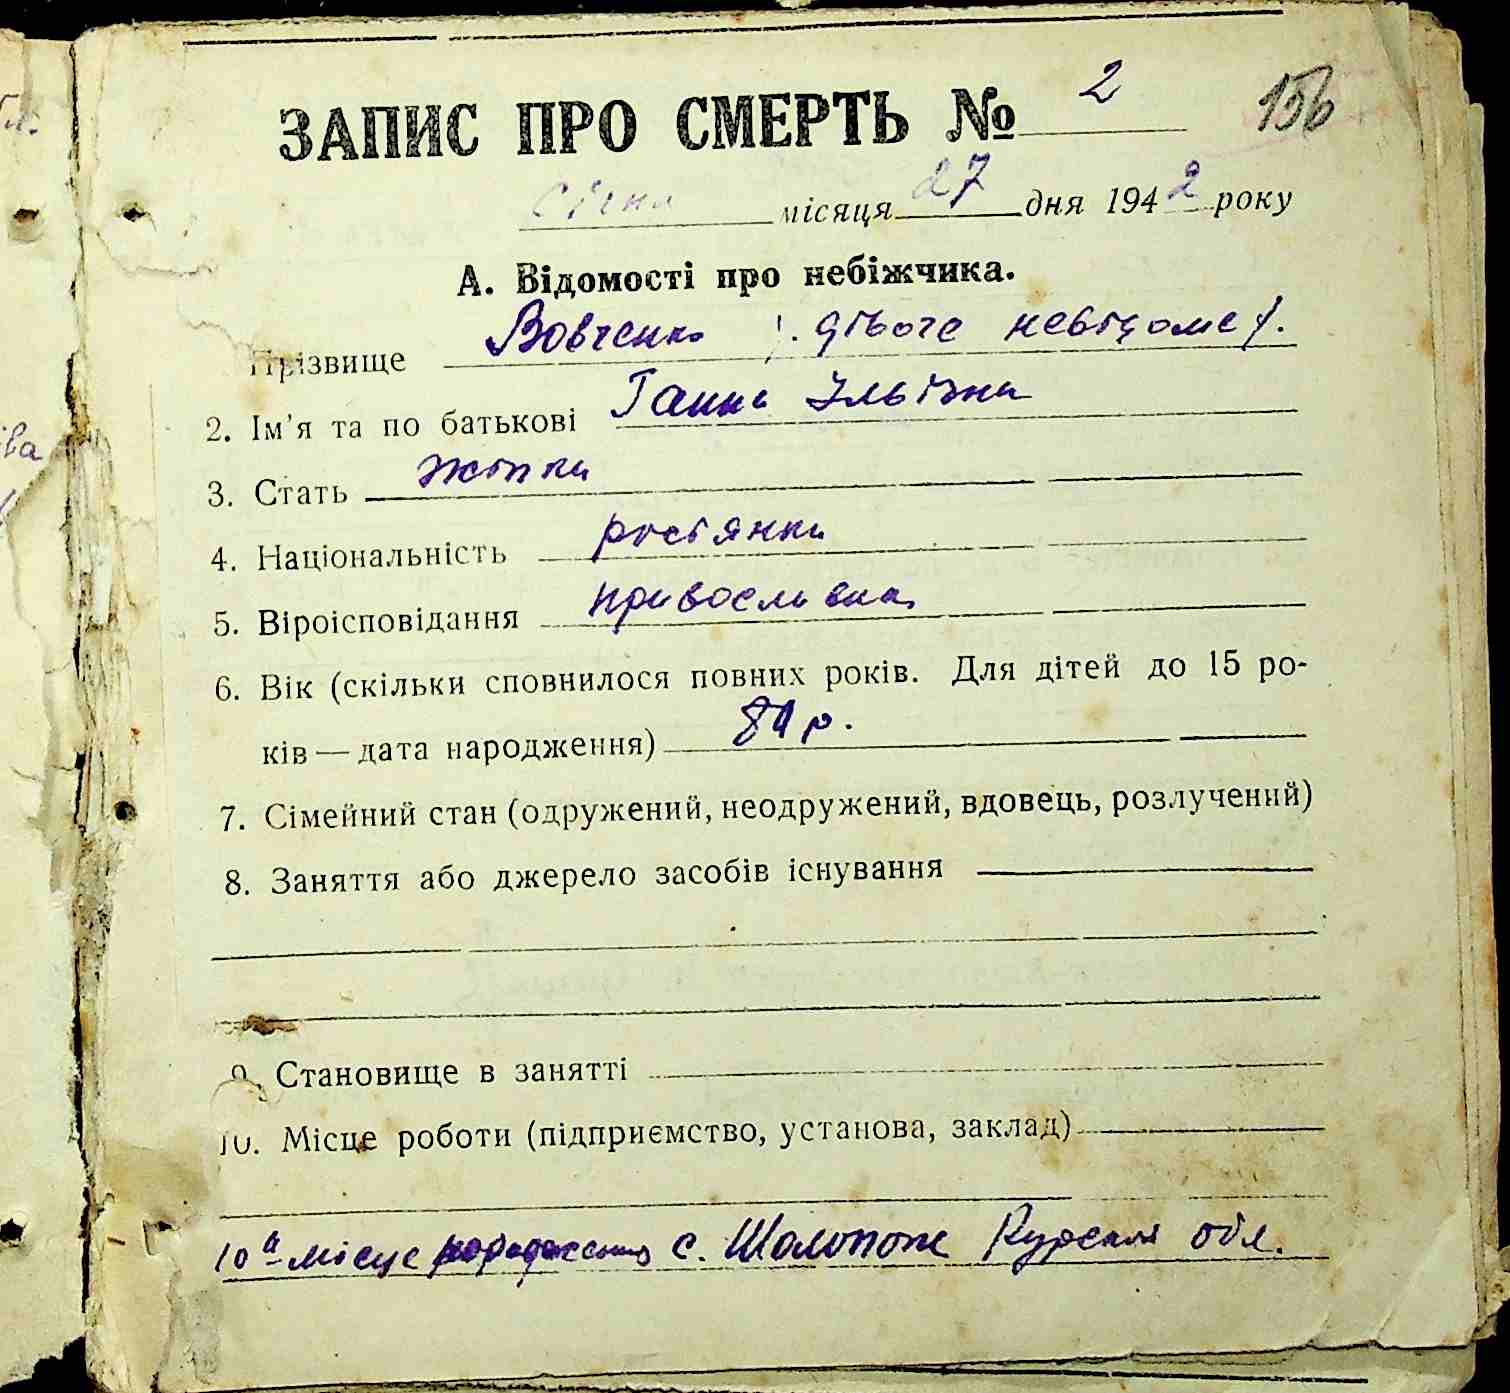 ЗАПИС ПРО СМЕРТЬ № 2
156
січня місяця 27 дня 1942 року
А. Відомості про небіжчика.
Прізвище Вовченко (дівоче невідоме).
2. Ім'я та по батькові Ганна Ільівна
3. Стать жінка
4. Національність росіянка
5. Віроісповідання православна
6. Вік (скільки сповнилося повних років. Для дітей до 15 ро-
ків — дата народження) 81 р.
7. Сімейний стан (одружений, неодружений, вдовець, розлучений)
8. Заняття або джерело засобів існування
9. Становище в занятті
10. Місце роботи (підприємство, установа, заклад)
10а - місце народження с. Шолопок Курська обл.